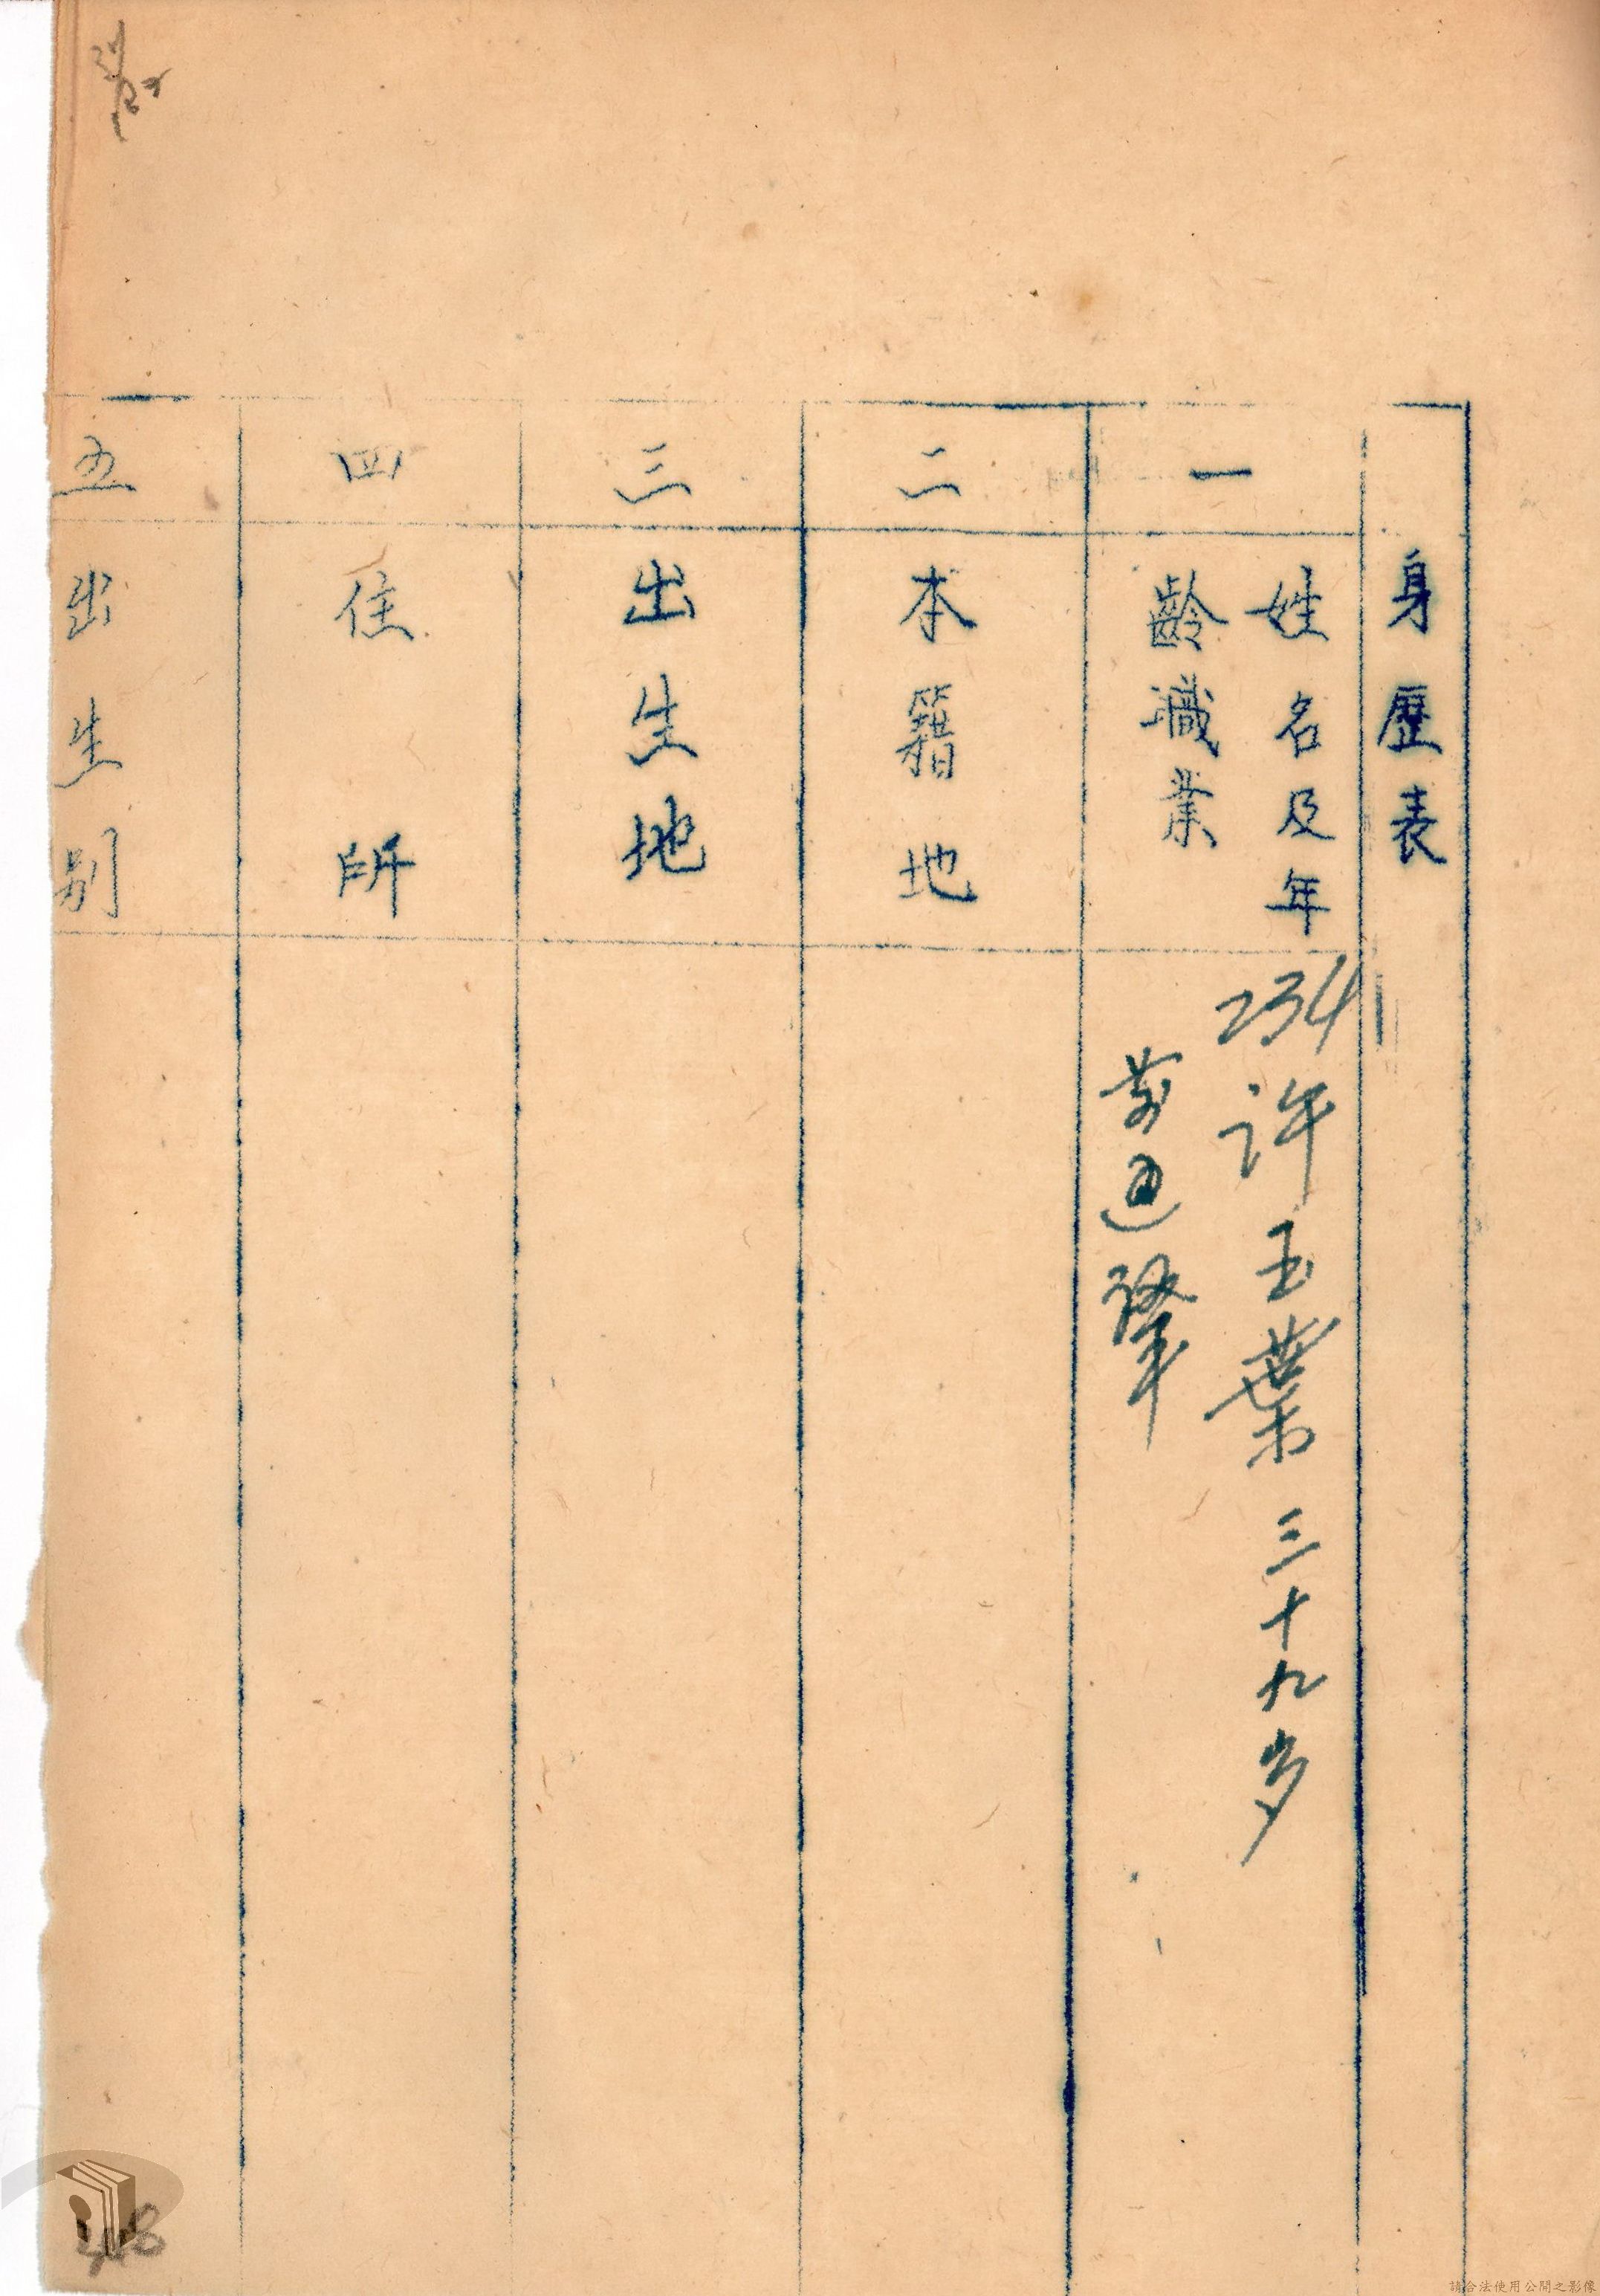 身歷表
一
姓名及年
齡職業
234 許玉葉 三十九岁
二
本籍地
三
出生地
四
住所
五
出生別
請合法使用公開之影像